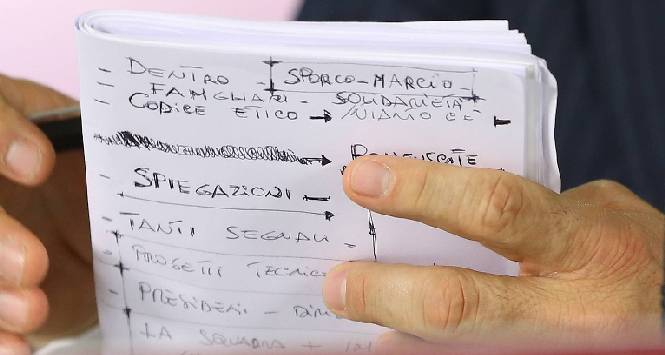 - DENTRO - SPORCO-MARCIO -
- FAMGLIARI - SOLIDARIETA
- CODICE ETICO →
- SPIEGAZIONI -
- TANTI SEGNALI -
- PROGETTI TECNICO
- PRESIDENTI - DIR
- LA SQUADRA +